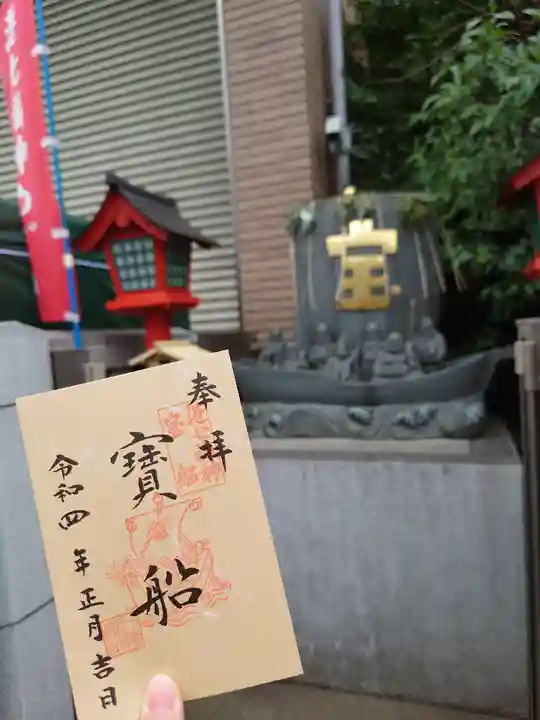 奉拝
寳船
令和四年正月吉日